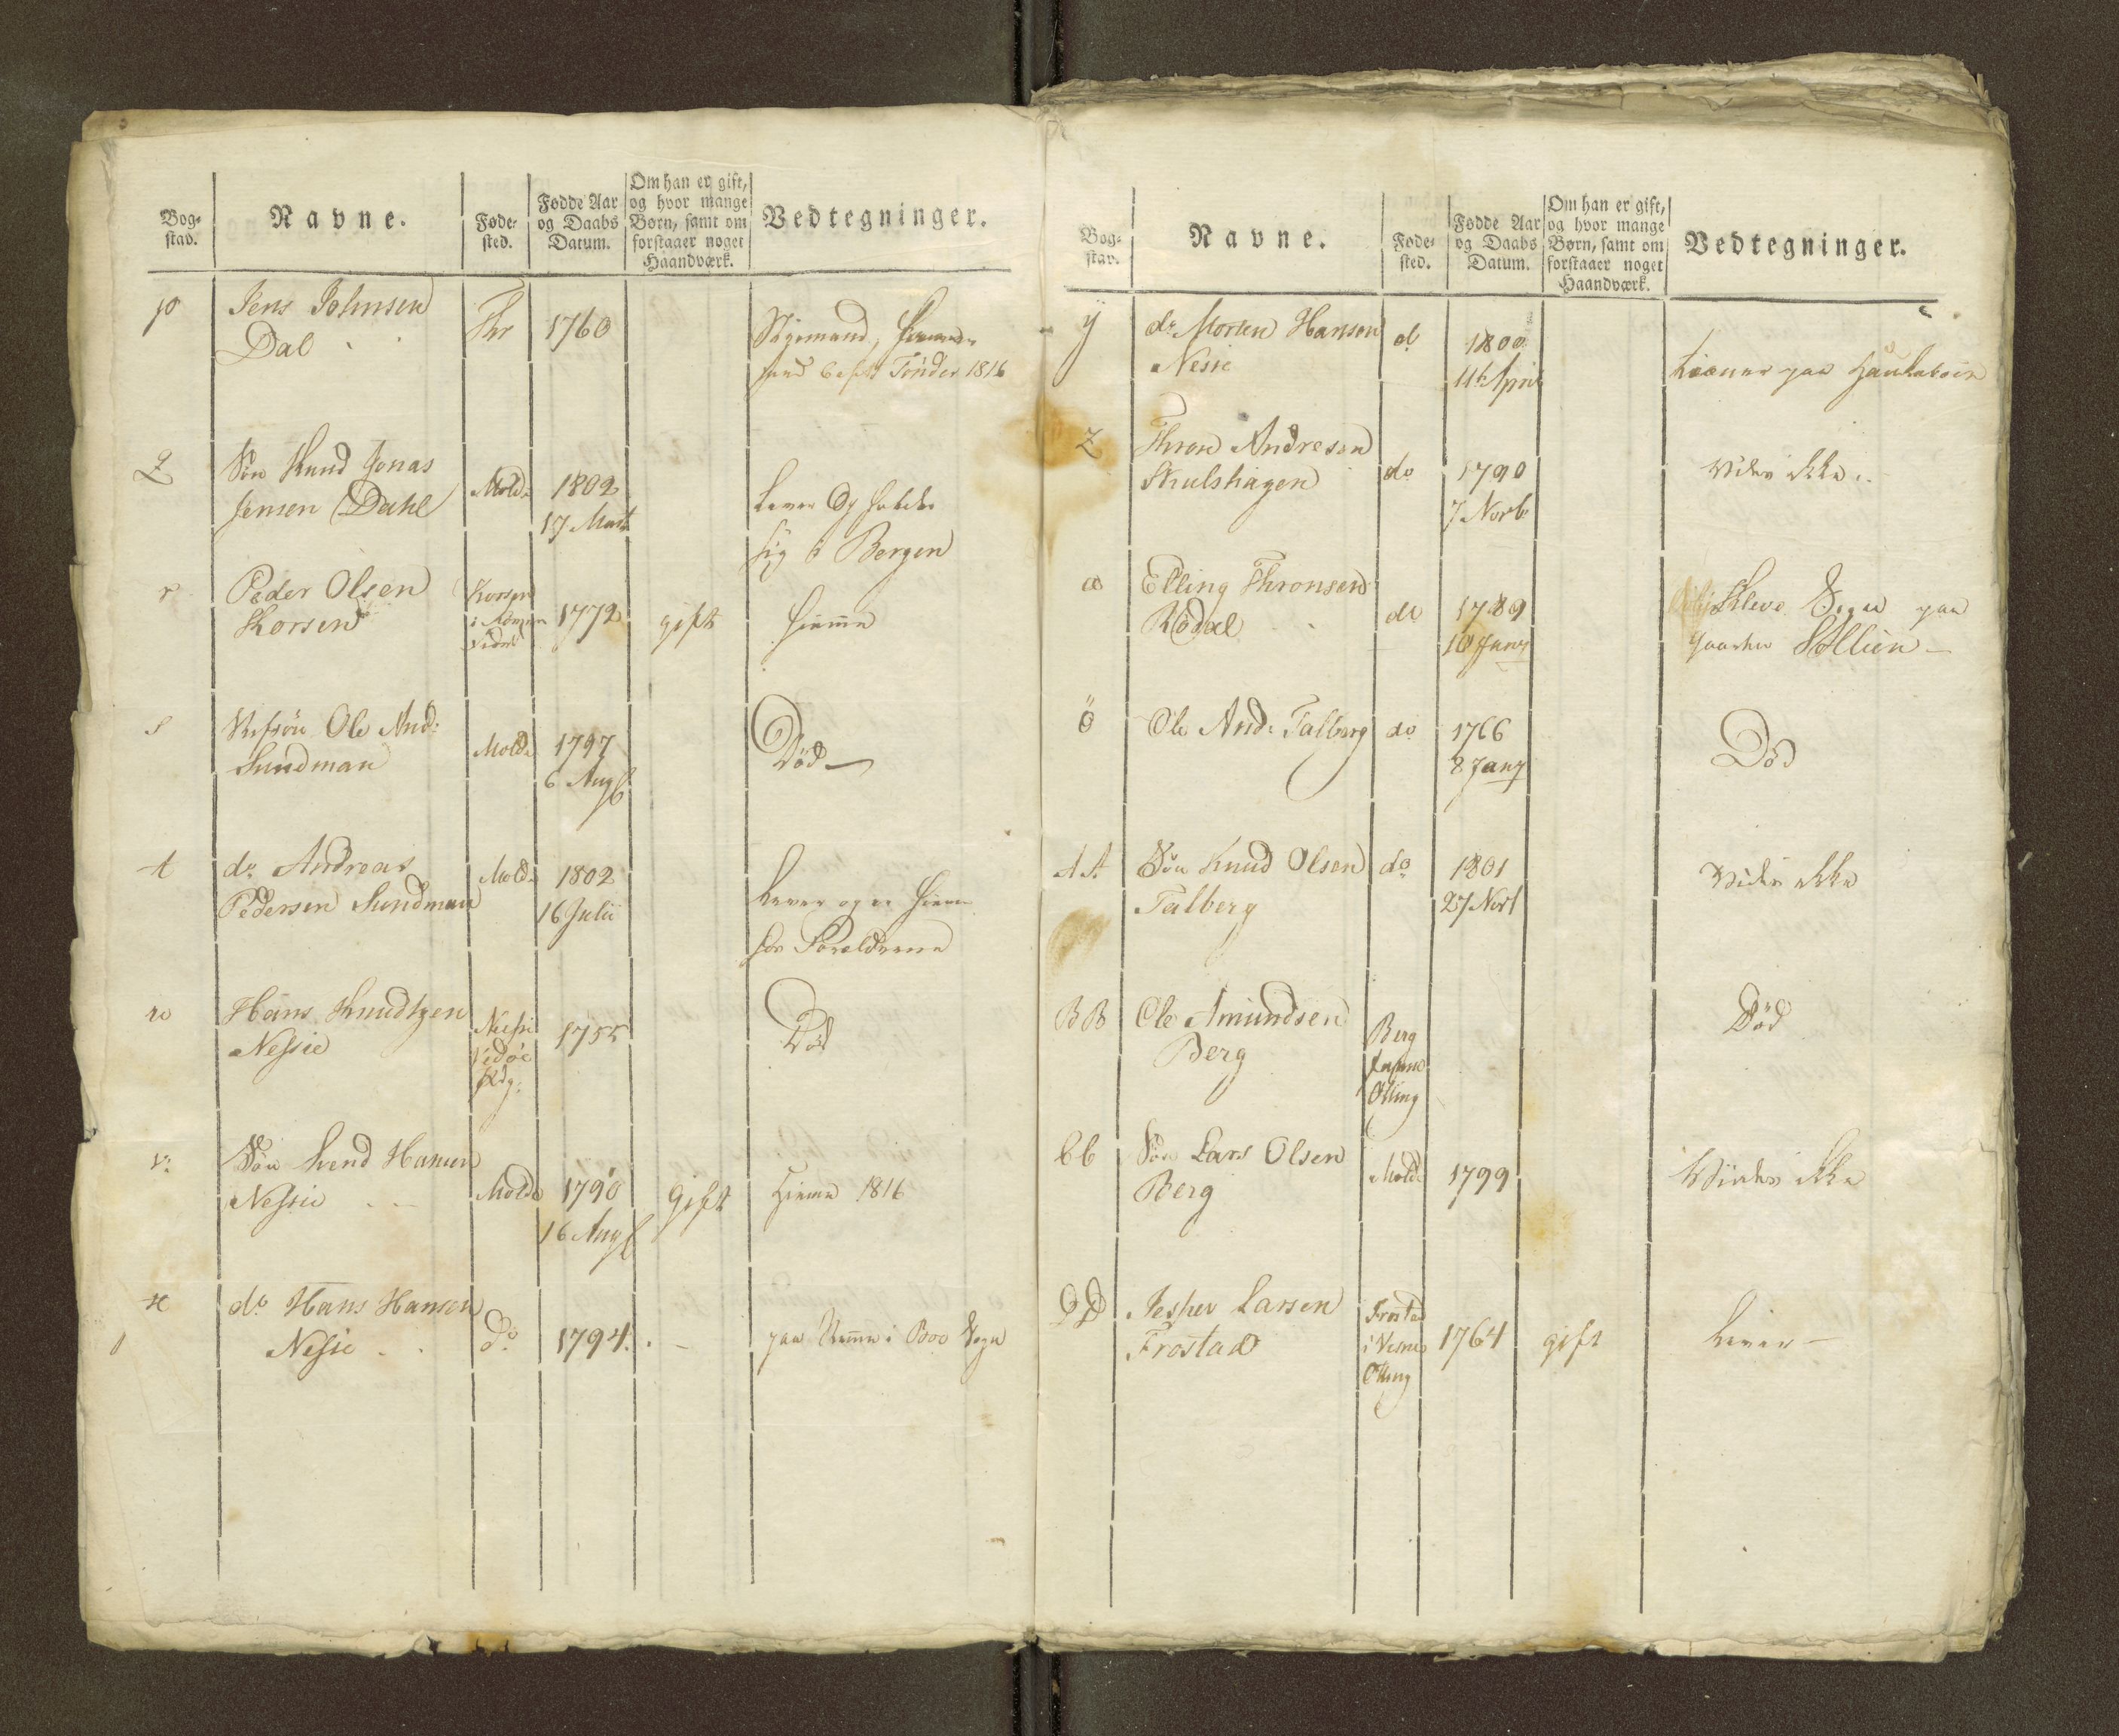 Bog-
stav.
Navne.
Føde-
sted.
Fødde Aar
og Daabs
Datum.
Om han er gift,
og hvor mange
Børn, samt om
forstaaer noget
Haandværk.
Vedtegninger.
p
Jens Johnsen
Dal
1760
Tönder 1816
q
Sön Knud Jonas
Jensen Dahl
Molde
1802
17 Marti
Lever og
sig i Bergen
r
Peder Olsen
Korsen
1772
gift
hiemme
s
Ole And:
Sundman
Molde
1797
6 Augs
Död
t
do Andreas
Pedersen Sundman
Molde
1802
16 Julii
Lever og er hiemme
hos Forældrene
u
Hans Knudtzen
Nessie
1755
Död
v
Sön Svend Hansen
Nessie
Molde
1790
16 Augs
Gift
Hiemme 1816
x
do Hans Hansen
Nessie
do
1794
paa i Boe Sogn
Bog-
stav.
Navne.
Føde-
sted.
Fødde Aar
og Daabs
Datum.
Om han er gift,
og hvor mange
Børn, samt om
forstaaer noget
Haandværk.
Vedtegninger.
y
do Morten Hansen
Nesie
do
1800
11te April
paa
z
Thron Andresen
Skulshagen
do
1790
7 Novb
Vides ikke
æ
Elling Thronsen
Rödal
do
1789
10 Jany
Kleve Sogn paa
Gaarden
ö
Ole And: Talberg
do
1766
8 Jany
Död
AA
Sön Knud Olsen
Talberg
do
1801
27 Novb
Vides ikke
BB
Ole Amundsen
Berg
Berg
Död
bb
Sön Lars Olsen
Berg
Molde
1799
Vides ikke
DD
Jesper Larsen
Frostad
Frostad
1764
gift
Lever